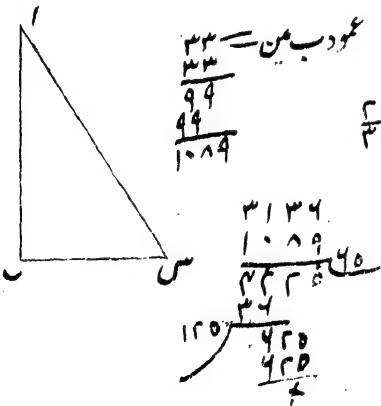 ا
عمود ب س = ۳۳
۳۳
۹۹
۹۹
۱۰۸۹
۲
۳
۳۱۳۶
۱۰۸۹
۴۲۲۵ ۶۵
۳۶
۱۲۵ ۶۲۵
۶۲۵
×
ب س